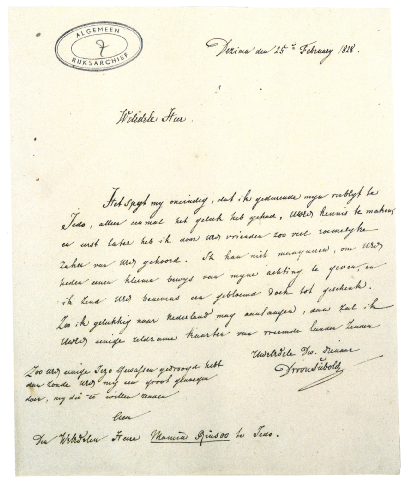 ALGEMEEN
RIJKSARCHIEF
Dezima den 25e February 1828.
Weledele Heer
Het spyt my oneindig, dat ik gedurende myn verblyf te
Jedo, alleen een mal het geluk heb gehad, UWed kennis te maken,
en eerst later heb ik door UWed vrienden zoo veel roemelyke
zaken van UWed gehoord. Ik kan niet manqueren, om UWed
heden een kleine bewys van myne achting te geven, en
ik zend UWed benevens een gebloemd doek tot geschenk.
Zoo ik gelukkig naar Nederland mag aankomen, dan zal ik
UWed eenige zeldzame kaarten van vreemde landen zenden
UWeledele Dw. dienaar
Dr von Siebold
Zoo UWed eenige Jezo gewassen gedroogd hebt
dan zoude UWed my een groot plaizier
doen, my die te willen zenden
Den Weledelen Heere Mamia Rinsoo te Jedo.